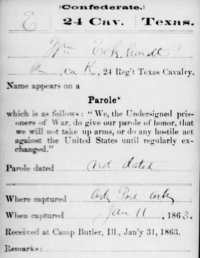 (Confederate.)
E 24 Cav. Texas.
Wm Eckhardt
Co. K, 24 Reg't Texas Cavalry.
Name appears on a
Parole*
which is as follows: "We, the Undersigned pris-
oners of War, do give our parole of honor, that
we will not take up arms, or do any hostile act
against the United States until regularly ex-
changed."
Parole dated not dated
Where captured Ark Post Ark
When captured Jan 11, 1863.
Received at Camp Butler, Ill., Jan'y 31, 1863.
Remarks: